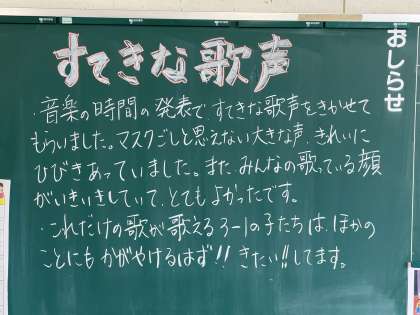 おしらせ
すてきな歌声
・音楽の時間の発表で、すてきな歌声をきかせて
もらいました。マスクごしと思えない大きな声、きれいに
ひびきあっていました。また、みんなの歌っている顔
がいきいきしていて、とてもよかったです。
・これだけの歌が歌える3-1の子たちは、ほかの
ことにもかがやけるはず!!きたい!!してます。